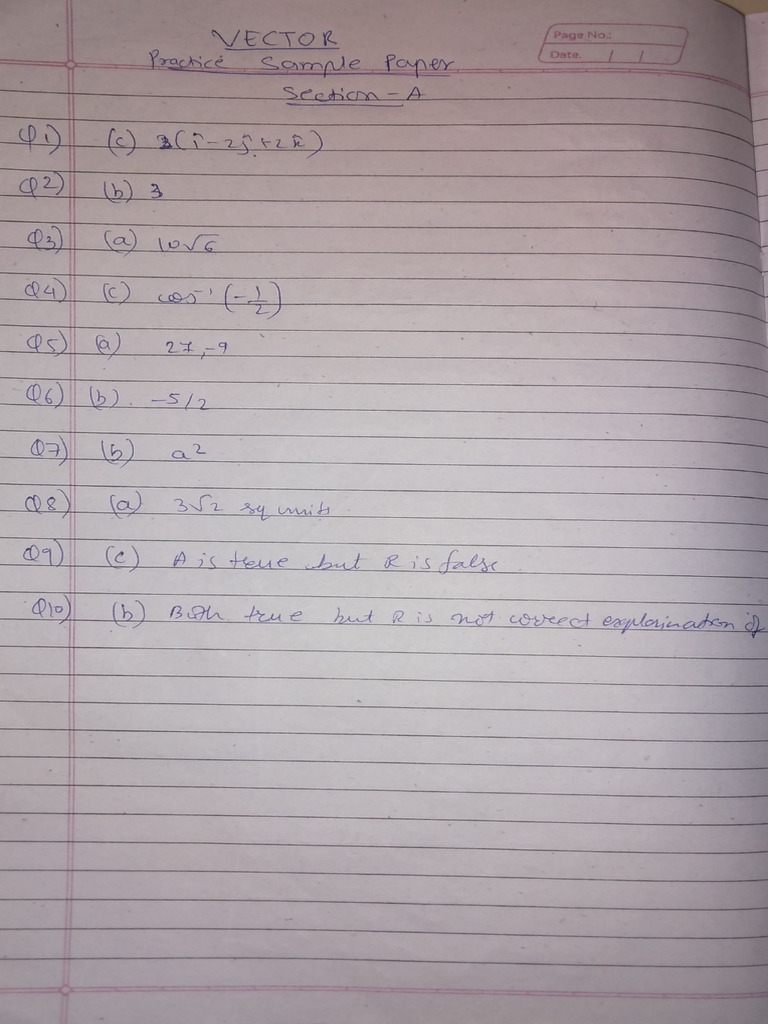 VECTOR
Page No.:
Date. / /
Practice Sample Paper
Section - A
Q1) (c) 3(î-2ĵ+2k̂)
Q2) (b) 3
Q3) (a) 10√6
Q4) (c) cos⁻¹(-1/2)
Q5) (a) 27,-9
Q6) (b). -5/2
Q7) (b) a²
Q8) (a) 3√2 sq units
Q9) (c) A is true but R is false
Q10) (b) Both true but R is not correct explaination of